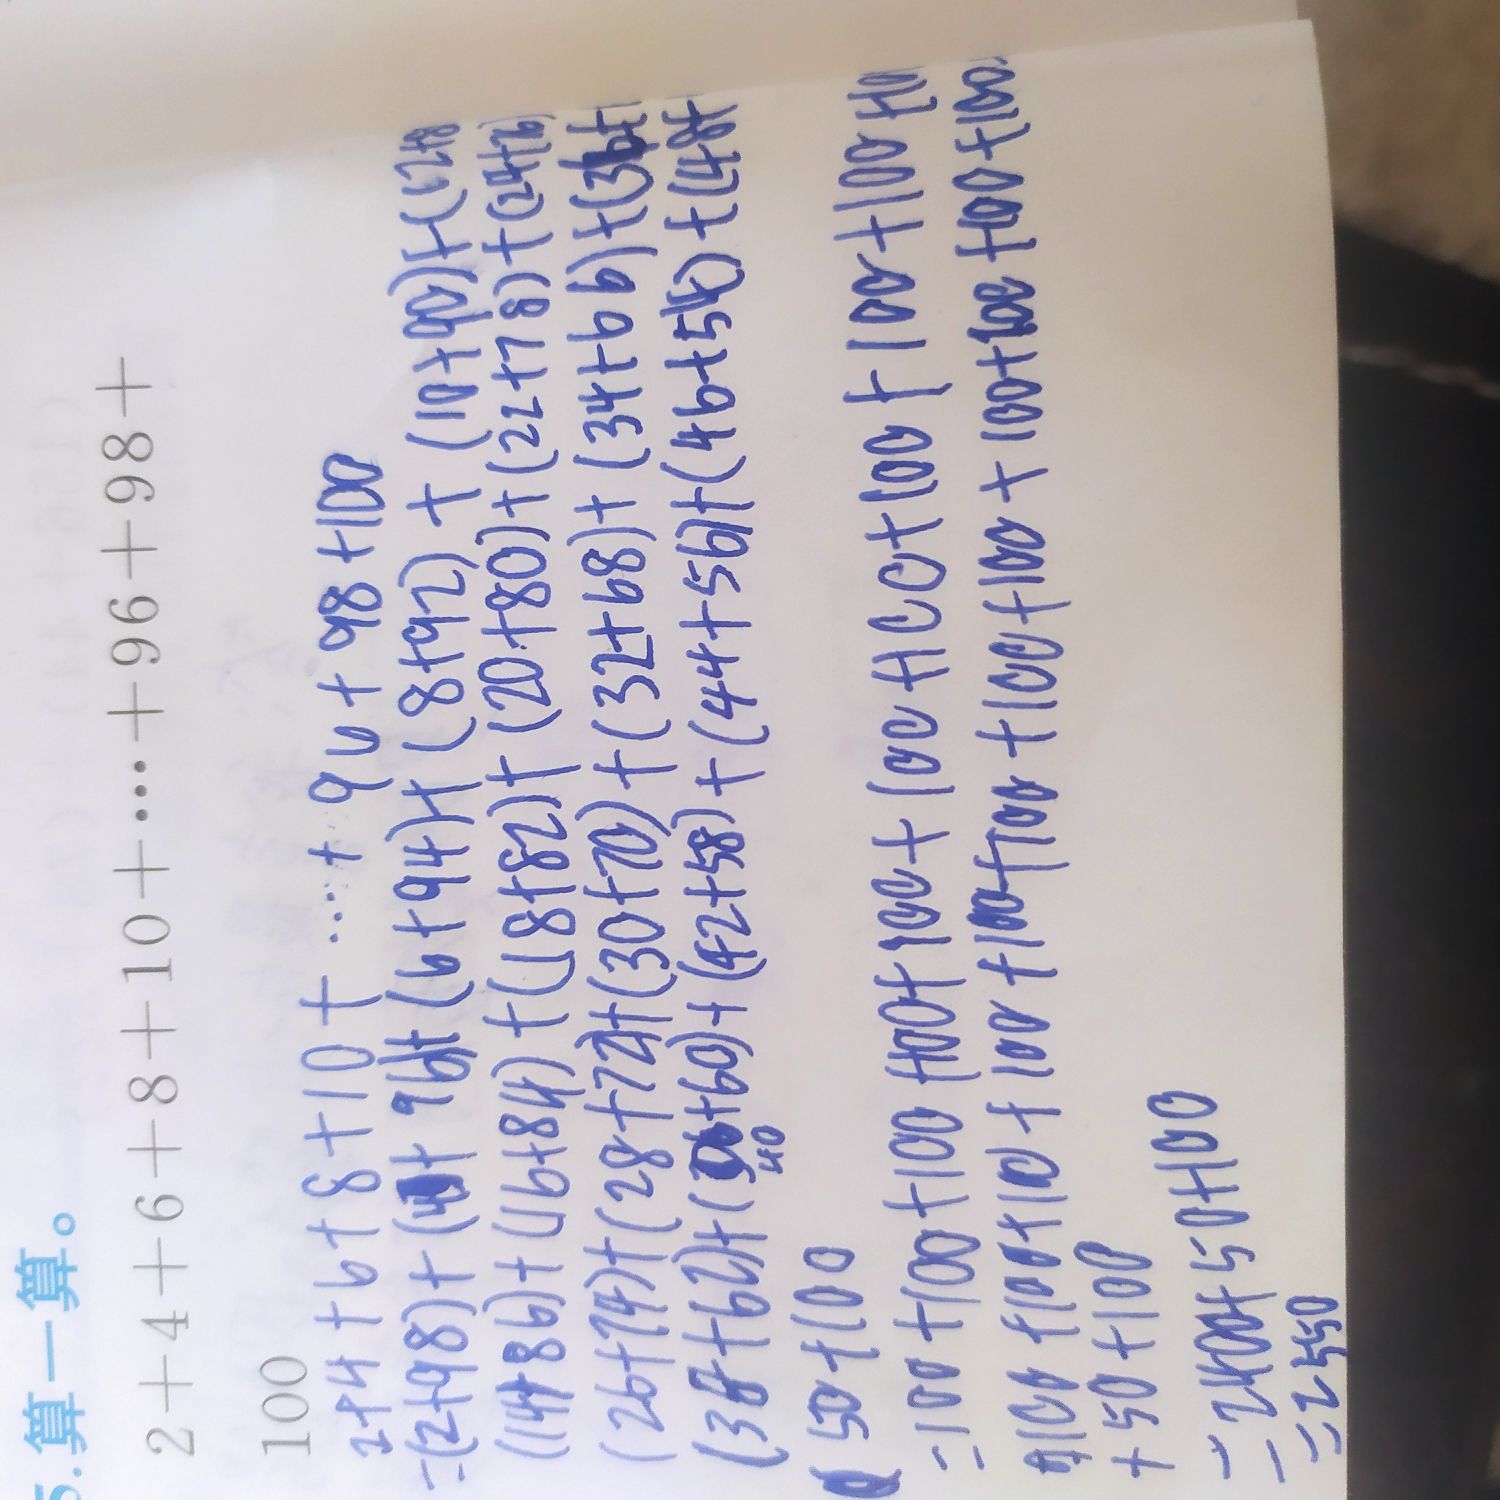 5.算一算。
2+4+6+8+10+…+96+98+
100
2+4+6+8+10+……+96+98+100
=(2+98)+(4+96)+(6+94)+(8+92)+(10+90)+(12+8
(14+86)+(16+84)+(18+82)+(20+80)+(22+78)+(24+
(26+74)+(28+72)+(30+70)+(32+68)+(34+66)+(36+
(38+62)+(40+60)+(42+58)+(44+56)+(46+54)+(48+
50+100
=100+100+100+100+100+100+100+100+100+100+
100+100+100+100+100+100+100+100+100+100+100+100+
+50+100
=2400+50+100
=2550